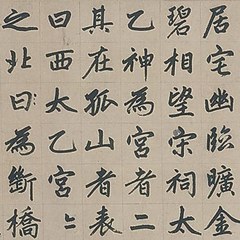 居宅幽臨曠金
碧相望宋祠太
乙神為宮者二
其在孤山者表
曰西太乙宮〻
之北曰為斷橋